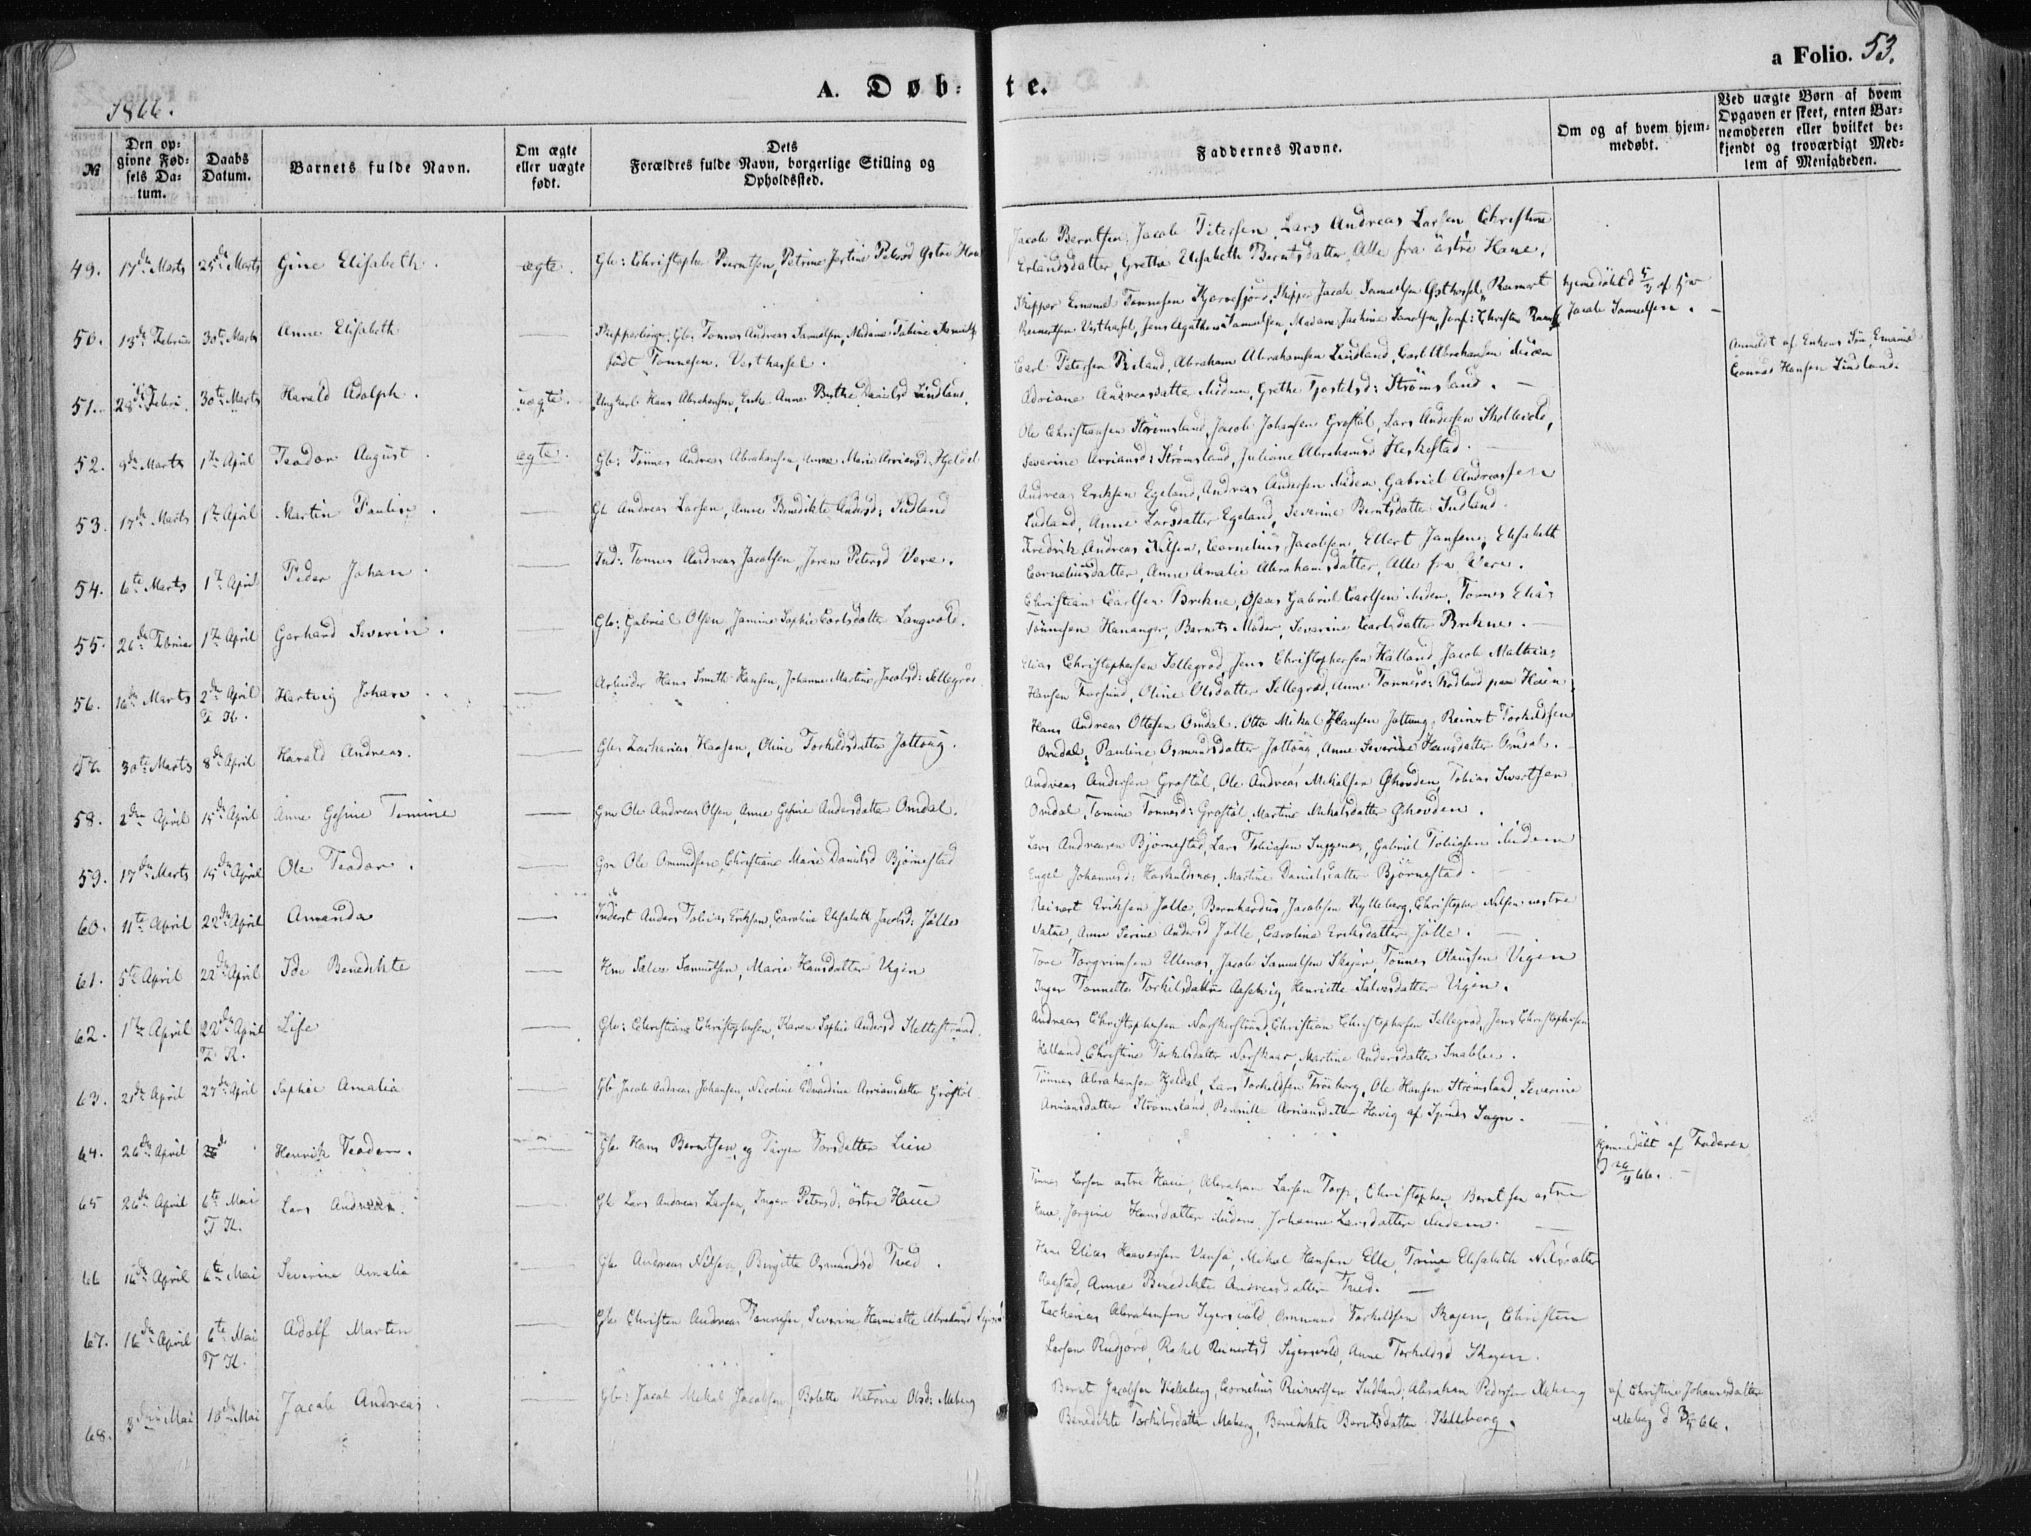 a Folio. 53.
A. Døb-te.
1866.
№
Den opgivne Fødsels Datum.
Daabs Datum.
Barnets fulde Navn.
Om ægte eller uægte født.
Dets Forældres fulde Navn, borgerlige Stilling og Opholdssted.
Faddernes Navne.
Om og af hvem hjemmedøbt.
Ved uægte Børn af hvem Opgaven er skeet, enten Barnemoderen eller hvilket bekjendt og troværdigt Medlem af Menigheden.
49. 17de Marts 25de Marts Gine Elisabeth. ægte. Gbr: Christopher Berntsen, Petrine Jertine Petersd østre Haue
Jacob Berntsen, Jacob Petersen, Lars Andreas Larsen, Christine
Erlandsdatter, Grethe Elisabeth Berntsdatter, Alle fra østre Haue.
50. 13de Februar 30te Marts Anne Elisabeth — Gbr. Tønnes Andreas Samuelsen, Madame Tabine
født Tønnesen. Vesthassel.
Skipper Emanuel Tønnesen Kjørrefjord, Skipper Jacob Samuelsen Østhassel, Reinert
Reinertsen Vesthassel, Jens Agathus Samuelsen, Madame Jachine Samuelsen, Jomf: Christine
hjemmedøbt d 5/3 af
Jacob Samuelsen. —
51. 28de Febr. 30te Marts Harald Adolph. uægte. Ungkarl Hans Abrahamsen, Enke Anne Birthe Danielsd Lindland.
Carl Petersen Briland, Abraham Abrahamsen Lindland, Carl Abrahamsen ibidem
Adriane Andreasdatter ibidem, Grethe Tjostelsd: Strømsland. —
Anmeldt af Enkens Søn, Emanuel
Conrad Hansen Lindland.
52. 9de Marts 1te April Teodor August. ægte. Gbr: Tønnes Andreas Abrahamsen, Anne Marie Arriansd. Hjeldal
Ole Christiansen Strømsland, Jacob Johansen Grøstøl, Lars Andersen Skollevold,
Severine Arriansd: Strømsland, Juliane Abrahamsd Heskestad. —
53. 17de Marts 1te April Martin Paulin. — Gbr Andreas Larsen, Anne Benedikte Andersd: Indland
Andreas Eriksen Egeland, Andreas Andersen ibidem, Gabriel Andreassen
Indland, Anne Larsdatter Egeland, Severine Berntsdatter Indland.
54. 6te Marts 1te April Peder Johan. — Ind: Tønnes Andreas Jacobsen, Joren Petersd Vere.
Fredrik Andreas Nilsen, Cornelius Jacobsen, Ellert Jansen, Elisabeth
Corneliusdatter, Anne Amalie Abrahamsdatter, Alle fra Vere.
55. 26de Februar 1te April Gerhard Severin. — Gbr: Gabriel Olsen, Jamine Sophie Carlsdatter Langvold.
Christian Carlsen Brekne, Osess Gabriel Carlsen ibidem, Tønnes Elias
Tønnesen Hananger, Barnets Moder, Severine Carlsdatter Brekne. —
56. 16de Marts 2den April T. K. Hartvig Johan. — Arbeider Hans Smith Hansen, Johanne Martine Jacobsd: Sellegrød
Elias Christophersen Sellegrod, Jens Christophersen Halland, Jacob Mathias
Hansen Farsund, Oline Olsdatter Sellegrod, Anne Tønnesd: Rødland paa Hein
57. 30te Marts 8de April Harald Andreas. — Gbr Zacharias Hansen, Oline Torkildsdatter Jøttoug.
Hans Andreas Ottesen Omdal, Otto Mikal Hansen Jøttoug, Reinert Torkildsen
Omdal, Pauline Osmundsdatter Jøttoug, Anne Severine Hansdatter Omdal.
58. 2den April 15de April Anne Gesine Tomine — Gm Ole Andreas Olsen, Anne Gesine Andersdatter Omdal.
Andreas Andersen Grøstøl, Ole Andreas Mikalsen Ohovden, Tobias Sivertsen
Omdal, Tomine Tønnesd: Grøstøl, Martine Mikalsdatter Ohovden.
59. 17de Marts 15de April Ole Teodor. — Gm Ole Omundsen, Christiane Marie Danielsd Bjørnestad
Lars Andreasen Bjørnestad, Lars Tobiasen Snggenes, Gabriel Tobiasen ibidem
Engel Johannesd: Haskuldsnes, Martine Danielsdatter Bjørnestad. —
60. 11te April 22de April Amanda — Inderst Anders Tobias Eriksen, Caroline Elisabeth Jacobsd: Jølle
Reinert Eriksen Jølle, Bernhardus Jacobsen Kylleberg, Christopher Nilsen vestre
Vatne, Anne Serine Andersd Jølle, Caroline Eriksdatter Jølle. —
61. 5te April 22de April Ide Benedikte — Hm Salve Samuelsen, Marie Hansdatter Vigen
Tore Torgrimsen Ellenes, Jacob Samuelsen Skejer, Tønnes Olaussen Vigen
Inger Tonnette Torkilsdatter Aaselvig, Henriette Salvesdatter Vigen.
62. 1te April 22de April T. K. Lise — Gbr: Christian Christophersen, Karen Sophie Andersd Kattestrand.
Andreas Christophersen Norskerstrand, Christian Christophersen Sellegrod, Jens Christophersen
Halland, Christine Torkilsdatter Norskaar, Martine Andersdatter Snabbe.
63. 21de April 27de April Sophie Amalia — Gbr Jacob Andreas Johansen, Nicoline Edvardine Arriansdatter Grøstøl
Tønnes Abrahamsen Hjeldal, Lars Torkildsen Frøiborg, Ole Hansen Strømsland, Severine
Arriansdatter Strømsland, Pernille Arriansdatter Høvig af Spinds Sogn.
64. 26de April Henrik Teodor. — Gbr Hans Berntsen og Tørjer Torsdatter Lien
Hjemmedøbt af Faderen
d 29/4 66. —
65 26de April 6te Mai T K. Lars Andreas. — Gbr Lars Andreas Larsen, Inger Petersd, østre Haue
Tønnes Larsen østre Haue, Abraham Larsen Torp, Christopher Berntsen østre
Haue, Jorgine Hansdatter ibidem, Johanne Larsdatter ibidem. —
66 16de April 6te Mai Severine Amalia — Gbr Andreas Nilsen, Birgitte Osmundsd Tued.
Hans Elias Haavorsen Vansø, Mikal Hansen Elle, Trine Elisabeth Nilsdatter
Røgstad, Anne Benedikte Andreasdatter Tued. —
67. 16de April 6te Mai T K. Adolf Martin — Gbr Christen Andreas Tønnesen, Severine Henriette Abrahamsd
Zacharias Abrahamsen Sigersvold, Ommund Torkildsen Skagen, Christen
Larsen Rudjord, Rakel Reinertsd Sigersvold, Anne Torkildsd Skagen.
68. 3die Mai 10de Mai Jacob Andreas. — Gbr: Jacob Mikal Jacobsen, Bolette Katrine Olsd: Meberg
Bernt Jacobsen Kalleberg, Cornelius Reinertsen Indland, Abraham Pedersen Meberg
Benedikte Torkilsdatter Meberg, Benedikte Berntsdatter Kalleberg.
af Christine Johannsdatter
Meberg d 3/5 66.